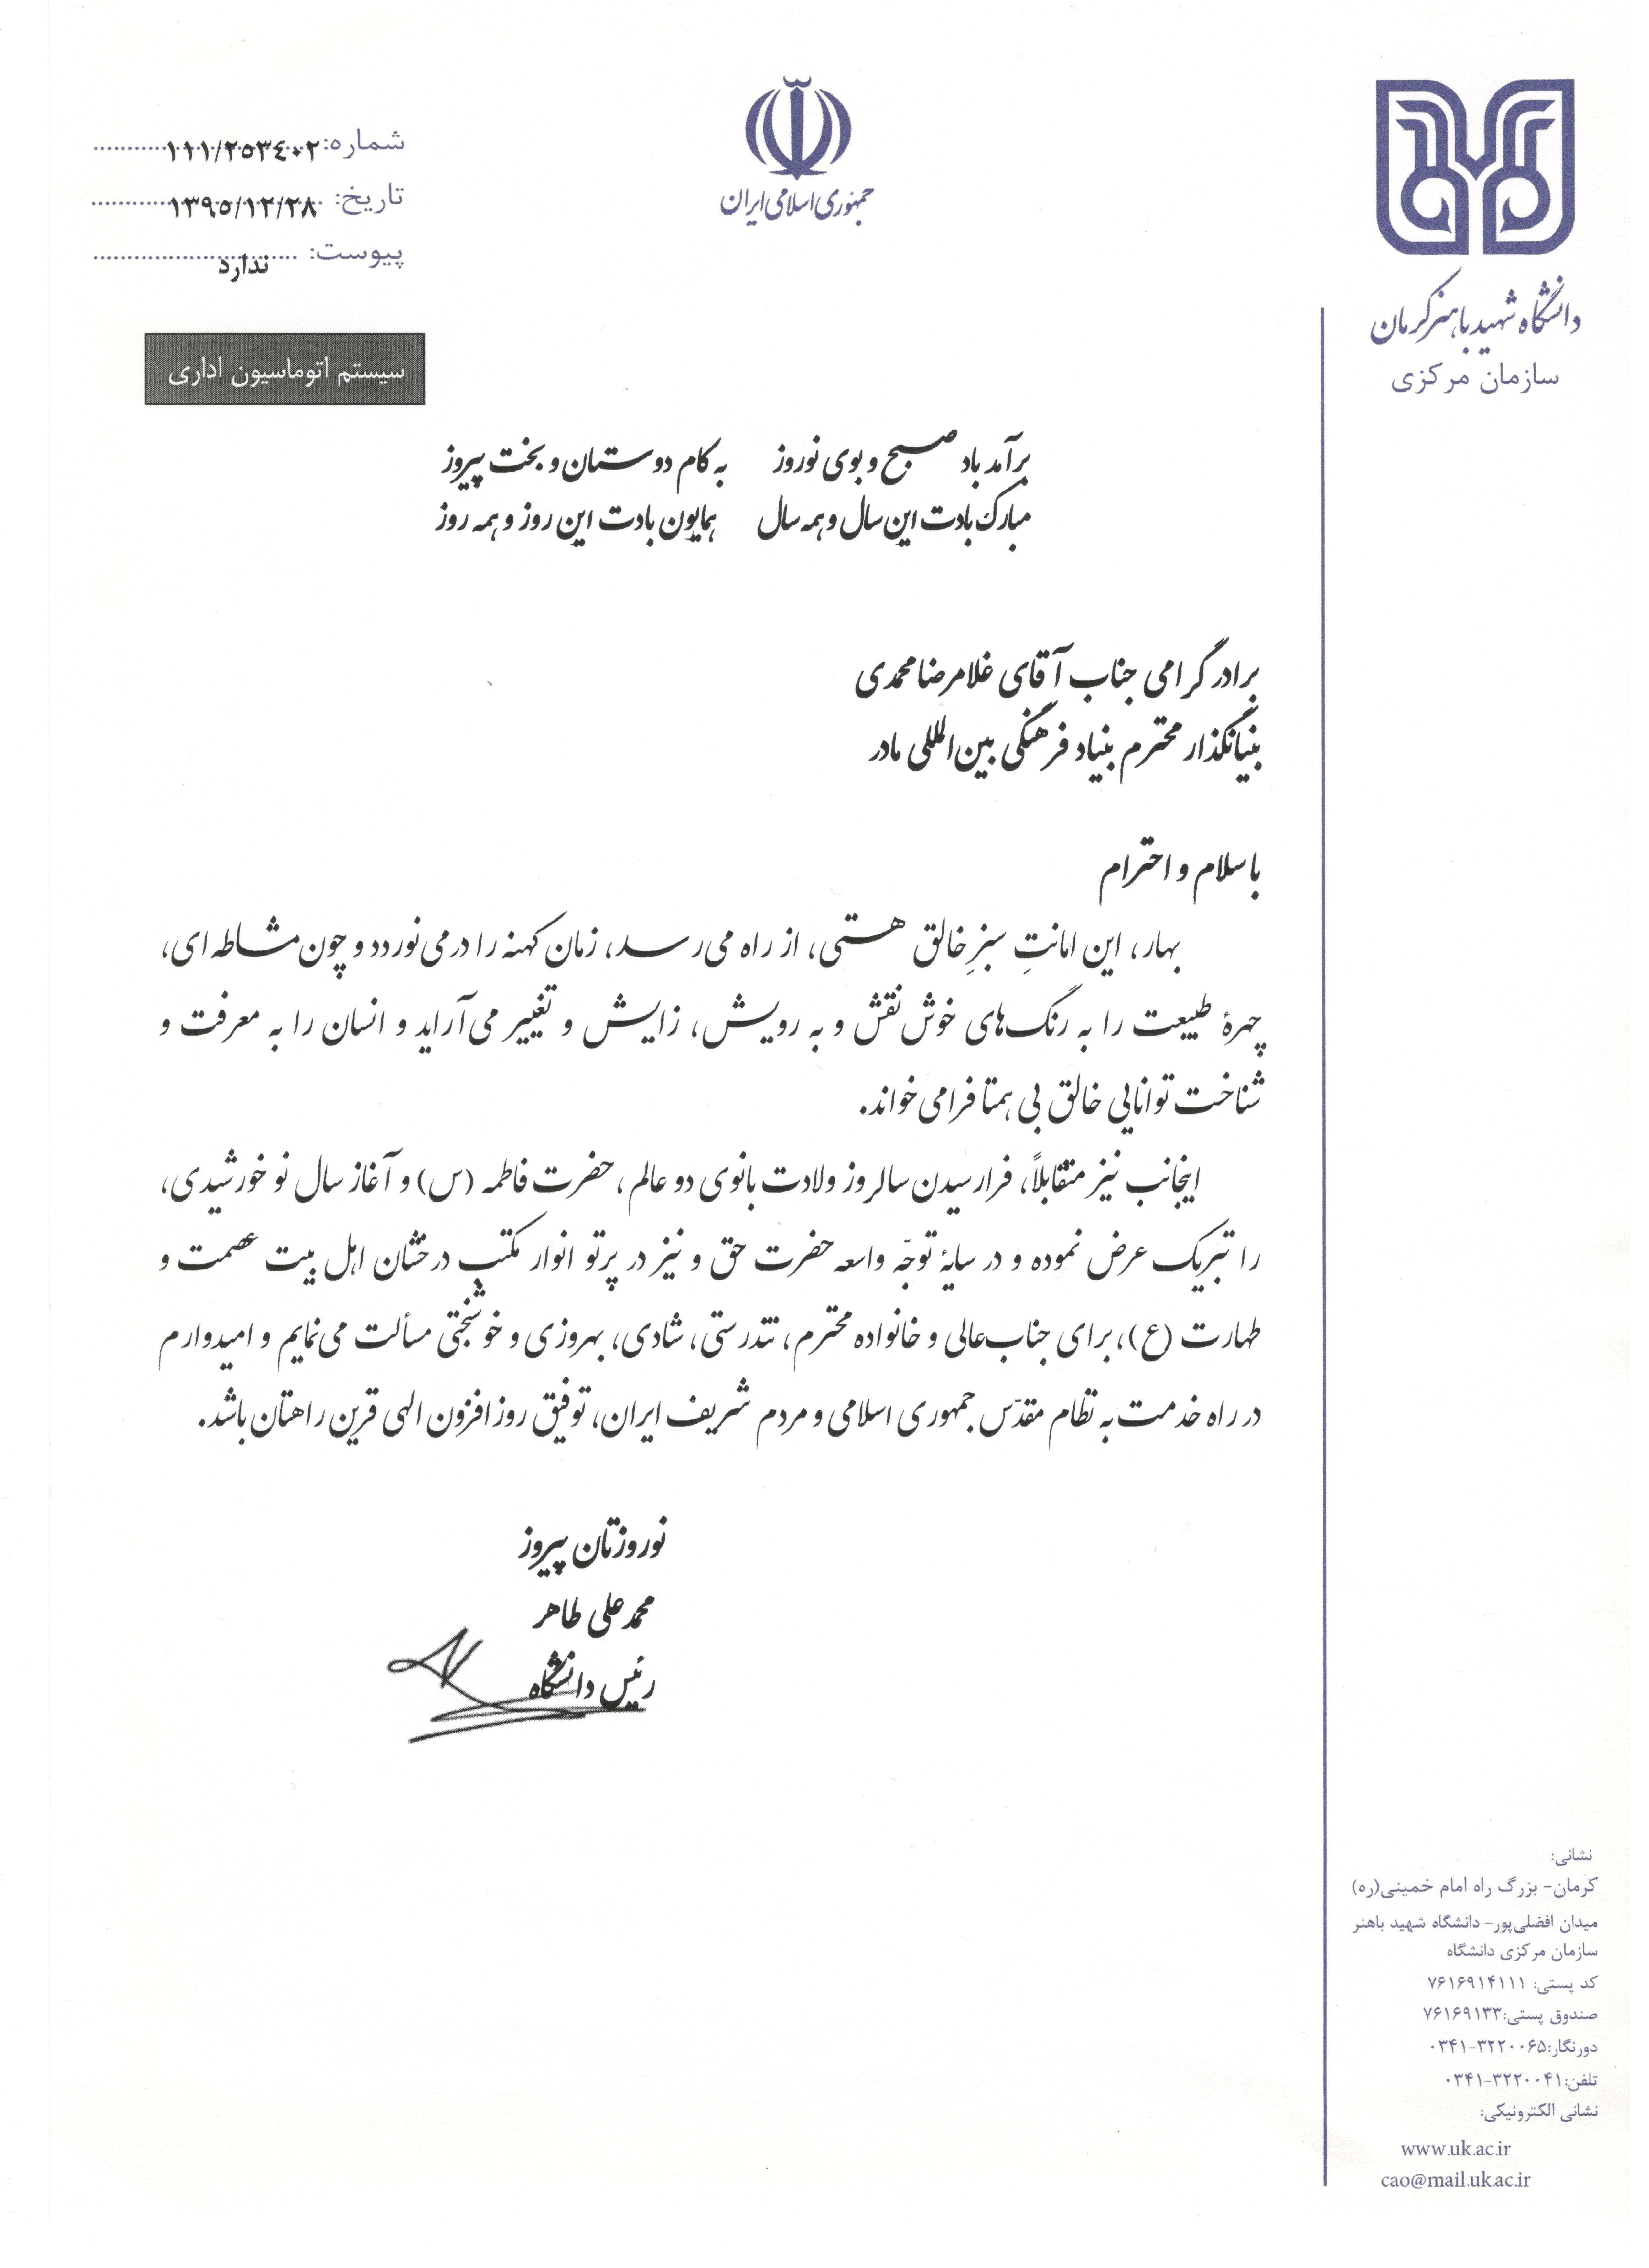 جمهوری اسلامی ایران
دانشگاه شهید باهنر کرمان
سازمان مرکزی
شماره: ۱۱۱/۲۵۳۴۰۲
تاریخ: ۱۳۹۵/۱۲/۲۸
پیوست: ندارد
سیستم اتوماسیون اداری
برآمد باد صبح و بوی نوروز به کام دوستان و بخت پیروز
مبارک بادت این سال و همه سال همایون بادت این روز و همه روز
برادر گرامی جناب آقای غلامرضا محمدی
بنیانگذار محترم بنیاد فرهنگی بین‌المللی مادر
با سلام و احترام
بهار، این امانتِ سبزِ خالق هستی، از راه می‌رسد، زمان کهنه را درمی‌نوردد و چون مشاطه‌ای،
چهرۀ طبیعت را به رنگ‌های خوش نقش و به رویش، زایش و تغییر می‌آراید و انسان را به معرفت و
شناخت توانایی خالق بی همتا فرامی‌خواند.
اینجانب نیز متقابلاً، فرارسیدن سالروز ولادت بانوی دو عالم، حضرت فاطمه (س) و آغاز سال نو خورشیدی،
را تبریک عرض نموده و در سایۀ توجّه واسعه حضرت حق و نیز در پرتو انوار مکتب درخشان اهل بیت عصمت و
طهارت (ع)، برای جناب‌عالی و خانواده محترم، تندرستی، شادی، بهروزی و خوشبختی مسألت می‌نمایم و امیدوارم
در راه خدمت به نظام مقدّس جمهوری اسلامی و مردم شریف ایران، توفیق روزافزون الهی قرین راهتان باشد.
نوروزتان پیروز
محمدعلی طاهر
رئیس دانشگاه
نشانی:
کرمان- بزرگ راه امام خمینی(ره)
میدان افضلی‌پور- دانشگاه شهید باهنر
سازمان مرکزی دانشگاه
کد پستی: ۷۶۱۶۹۱۴۱۱۱
صندوق پستی:۷۶۱۶۹۱۳۳
دورنگار:۰۳۴۱-۳۲۲۰۰۶۵
تلفن:۰۳۴۱-۳۲۲۰۰۴۱
نشانی الکترونیکی:
www.uk.ac.ir
cao@mail.uk.ac.ir